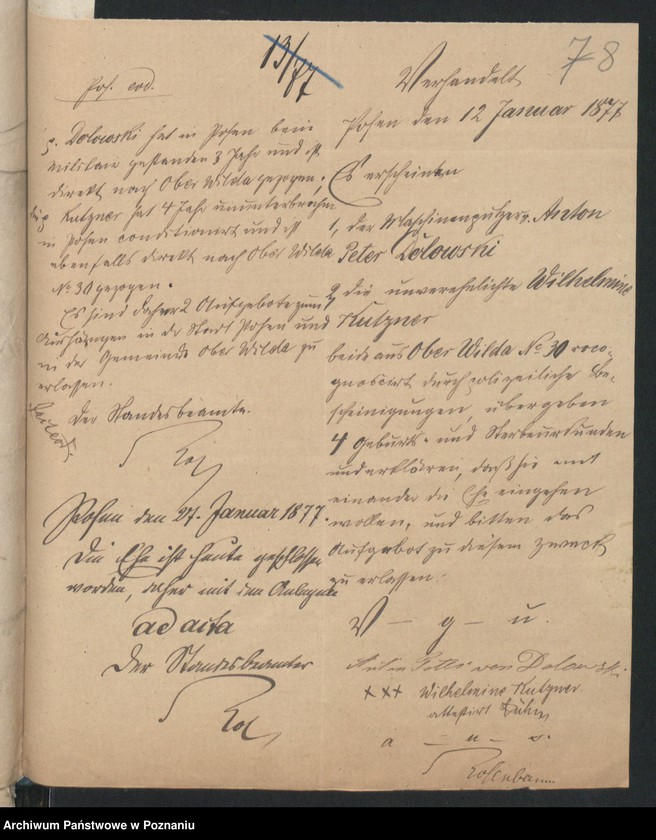 13/77
78
Verhandelt
Posen den 12 Januar 1877
Es erscheinen
1, der Maschinenputzer v. Anton
Peter Dolowski
2, die unverehelichte Wilhelmine
Kutzner
beide aus Ober Wilda No 30 reco-
gnoscirt durch polizeiliche Be-
scheinigungen, übergeben
4 Geburts- und Sterbeurkunden
und erklären, daß sie mit
einander die Ehe eingehen
wollen, und bitten das
Aufgebot zu diesem Zweck
zu erlassen.
V – g – u.
Anton Peter von Dolowski
××× Wilhelmine Kutzner
attestirt
a – u – s.
Rosenbaum
Pos. eod.
p. Dolowski hat in Posen beim
Militair gestanden 3 Jahr und ist
direkt nach Ober Wilda gezogen;
Kutzner hat 4 Jahr ununterbrochen
in Posen conditionirt und ist
ebenfalls direkt nach Ober Wilda
No 30 gezogen.
Es sind daher 2 Aufgebote zum
Aushängen in der Stadt Posen und
in der Gemeinde Ober Wilda zu
erlassen.
Der Standesbeamte.
Posen den 27. Januar 1877.
Die Ehe ist heute geschlossen
worden, daher mit den Anlagen
ad acta
Der Standesbeamte